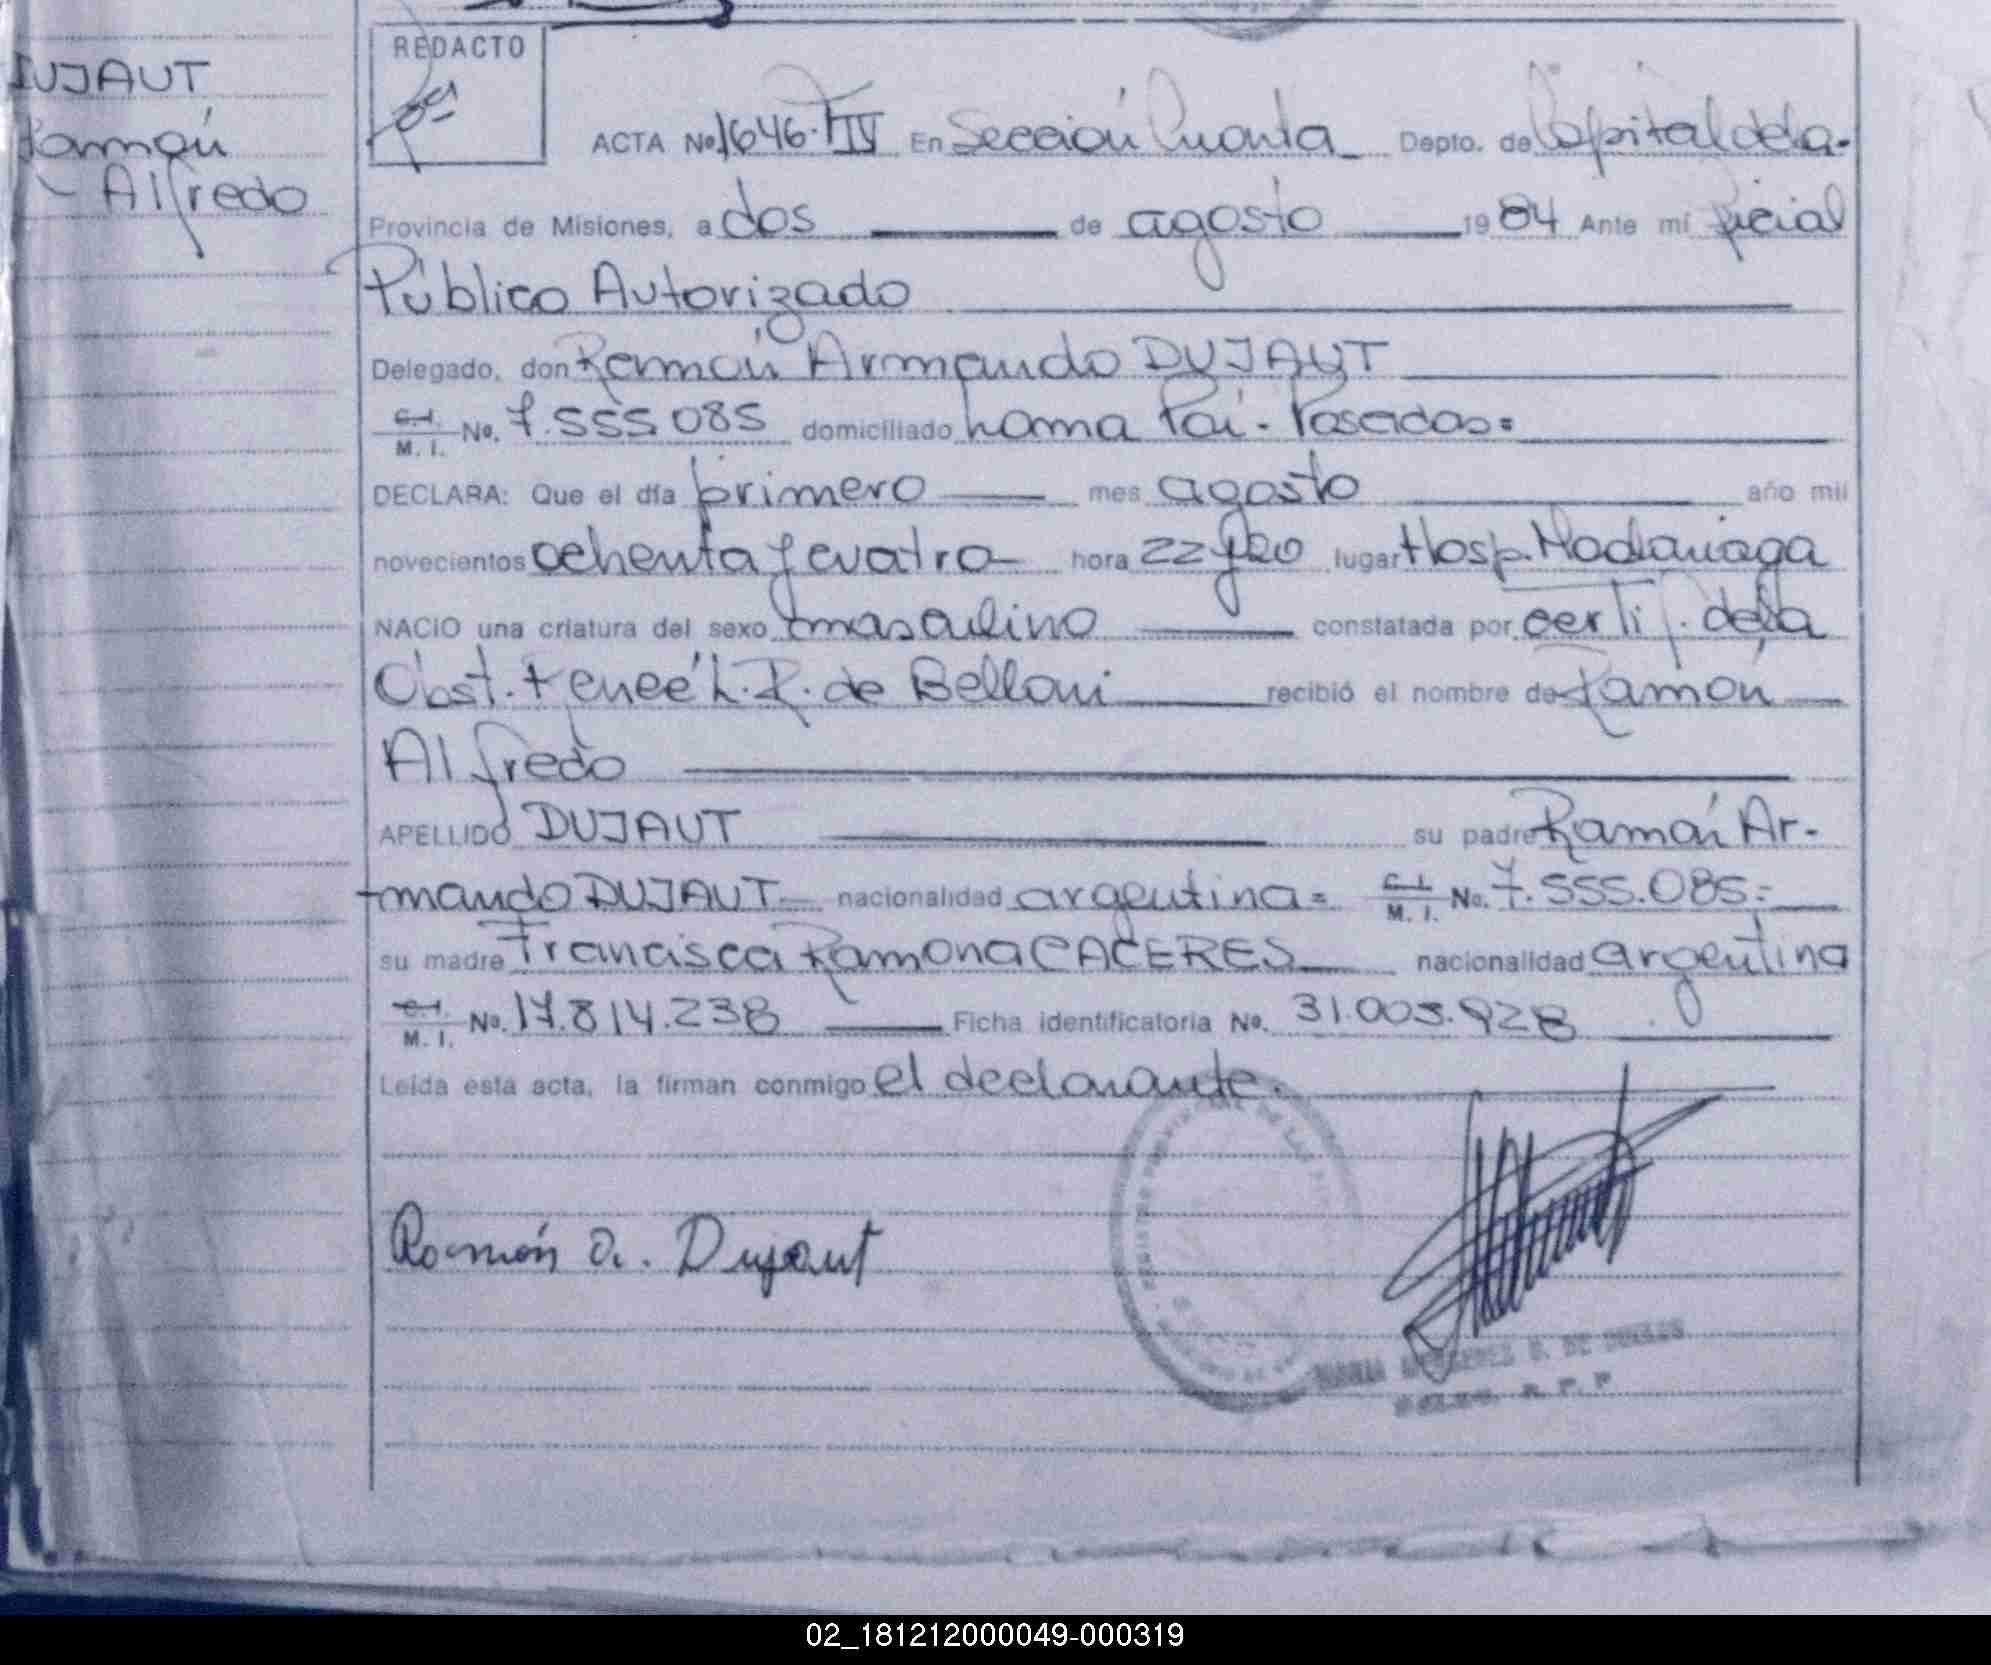 DUJAUT
Ramón
Alfredo
REDACTO
ACTA Nº 1646-TIV En Sección Cuarta Depto. de Capital de la
Provincia de Misiones, a dos de agosto 1984 Ante mí Oficial
Público Autorizado
Delegado, don Ramón Armando DUJAUT
C.I. M. I. No. 7.555.085 domiciliado Loma Poi - Posadas=
DECLARA: Que el día primero mes agosto año mil
novecientos ochenta y cuatro hora 22 y 20 lugar Hosp. Madariaga
NACIO una criatura del sexo masculino constatada por certif. de la
Obst. Reneé L. R. de Belloni recibió el nombre de Ramón
Alfredo
APELLIDO DUJAUT su padre Ramón Ar-
mando DUJAUT nacionalidad argentina= C.I. M. I. No. 7.555.085=
su madre Francisca Ramona CACERES nacionalidad argentina
C.I. M. I. No. 17.814.238 Ficha identificatoria No. 31.003.928
Leída esta acta, la firman conmigo el declarante.
Ramón A. Dujaut
02_181212000049-000319